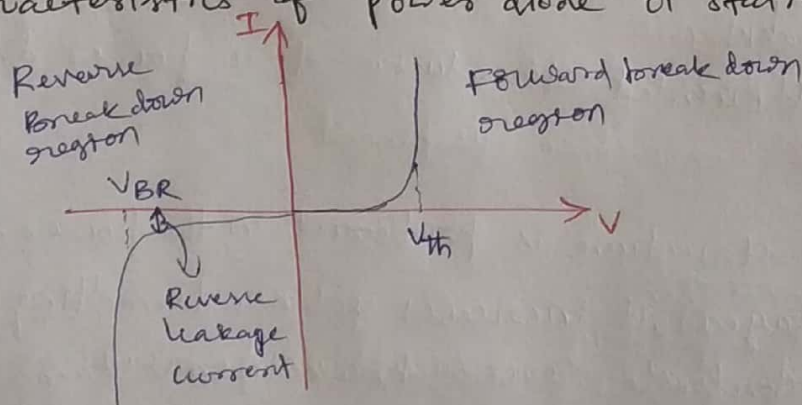 of power diode or
I
Reverse
Breakdown
region
Forward break down
region
VBR
V
Vth
Reverse
leakage
current